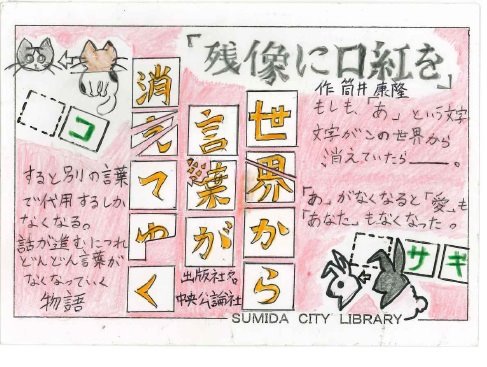 「残像に口紅を」
作 筒井康隆
世界から
言葉が
消えてゆく
もしも、「あ」という文字
文字がこの世界から
消えていたら――。
「あ」がなくなると「愛」も
「あなた」もなくなった。
サギ
コ
すると別の言葉
で代用するしか
なくなる。
話が進むにつれ
どんどん言葉が
なくなっていく
物語
出版社名
中央公論社
SUMIDA CITY LIBRARY